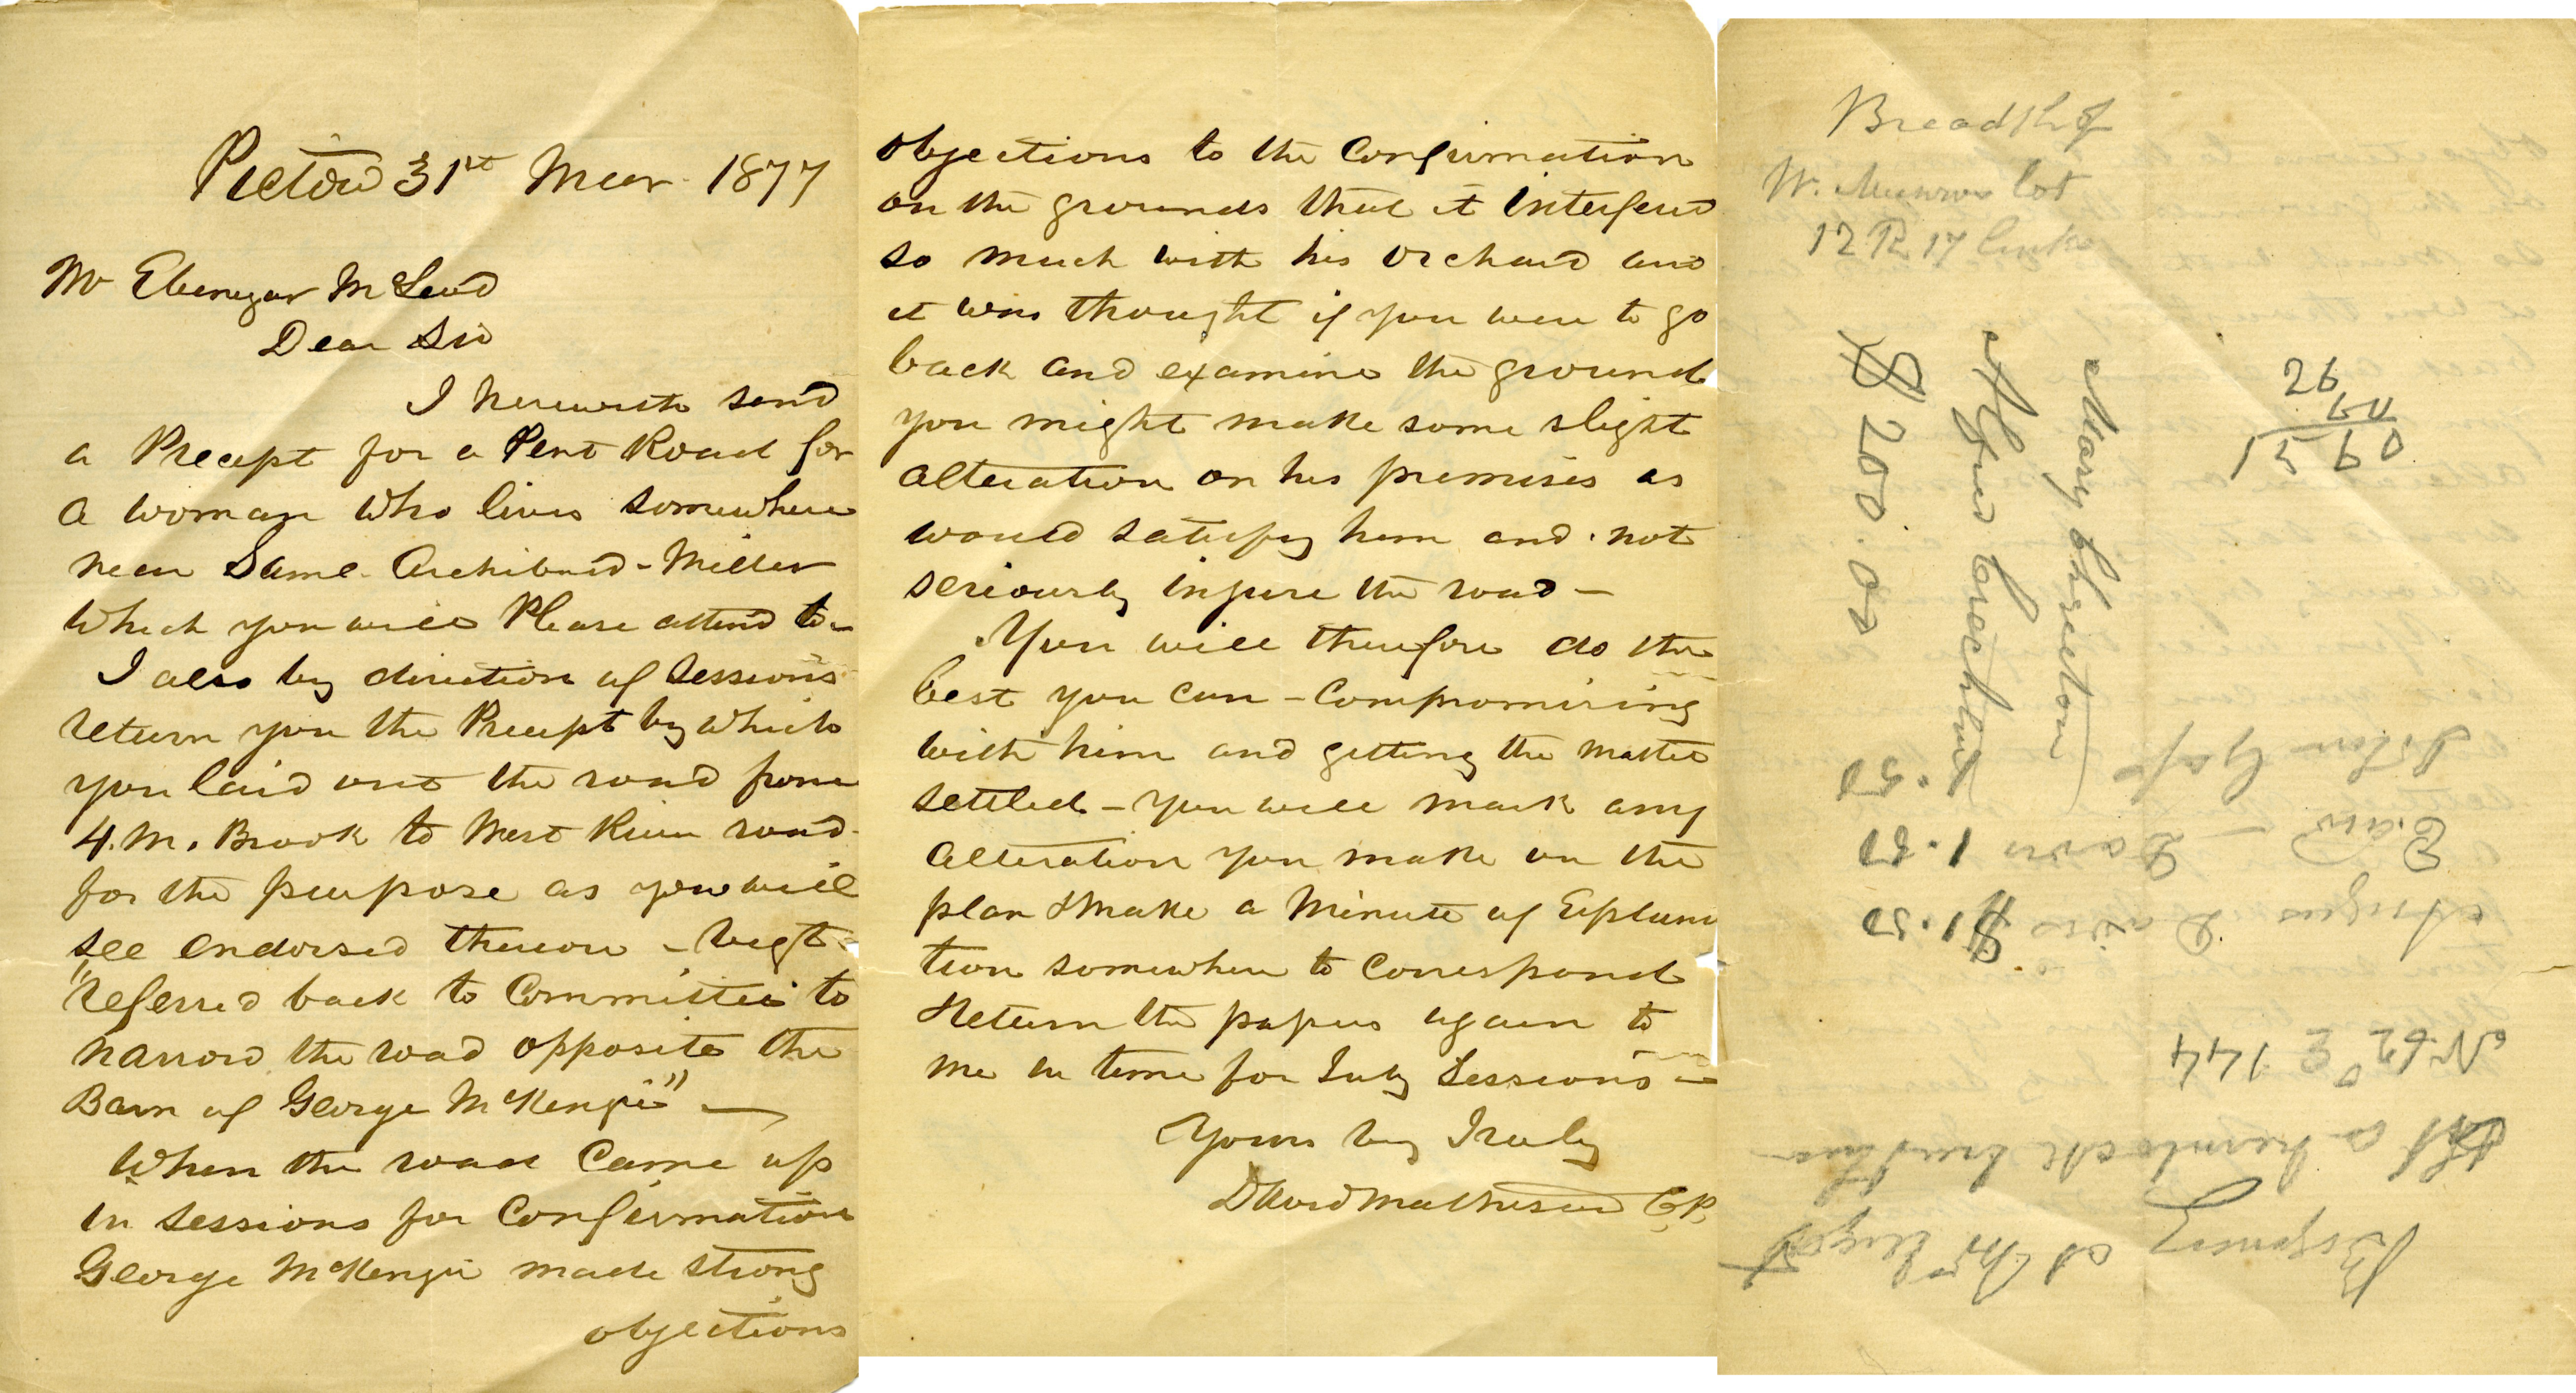 Pictou 31st Mar. 1877
Mr Ebenezar McLeod
Dear Sir
I herewith send
a Precept for a Pent Road for
a woman who lives somewhere
near Saml. Archibald - Miller
Which you will Please attend to -
I also by direction of Sessions
return you the Precept by which
you laid out the road from
4. M. Brook to West River road
for the purpose as you will
see endorsed thereon -
"referred back to Committee to
narrow the road opposite the
Barn of George McKenzie" —
When the road Came up
in Sessions for Confirmation
George McKenzie made strong
objections
objections to the Confirmation
on the grounds that it interfered
so much with his orchard and
it was thought if you were to go
back and examine the ground
you might make some slight
alteration on his premises as
would satisfy him and not
seriously injure the road —
You will therefore do the
best you can - Compromising
with him and getting the matter
settled - You will mark any
alteration you make on the
plan & make a Minute of Explana
tion somewhere to Correspond
& return the papers again to
me in time for July Sessions -
Yours very Truly
David Matheson C.P.
Breadth of
W. Munroe lot
12 R 17 links
26
60
1560
Mary
Angus
$200.00
.50
E. 1.50
Angus $1.50
N 62° E 144
At a hemlock
at